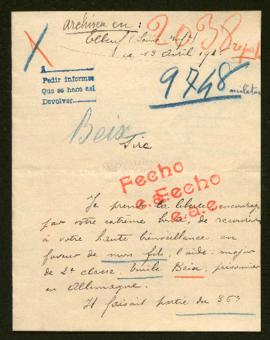 archiver en :
2038
ce 13 Avril 19
1
Pedir informes
Que se hace así
Devolver
9748
militar
Beix
Sire
Fecho
e.a.e
Fecho
e.a.e
Je prends la liberté, encouragé
par votre extrême bonté, de recourir
à votre haute bienveillance en
faveur de mon fils, l'aide-major
de 2e classe, Emile Beix, prisonnier
en Allemagne.
Il faisait partie du 363